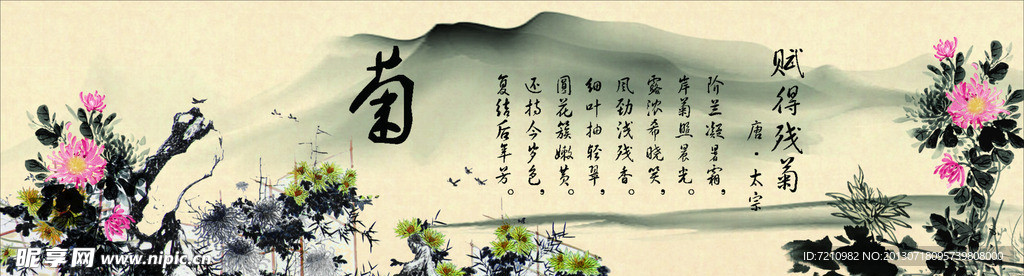 菊
赋得残菊
唐·太宗
阶兰凝暑霜，
岸菊照晨光。
露浓希晓笑，
风劲浅残香。
细叶抽轻翠，
圆花簇嫩黄。
还持今岁色，
复结后年芳。
昵享网 www.nipic.cn
ID:7210982 NO:20130718095739808000